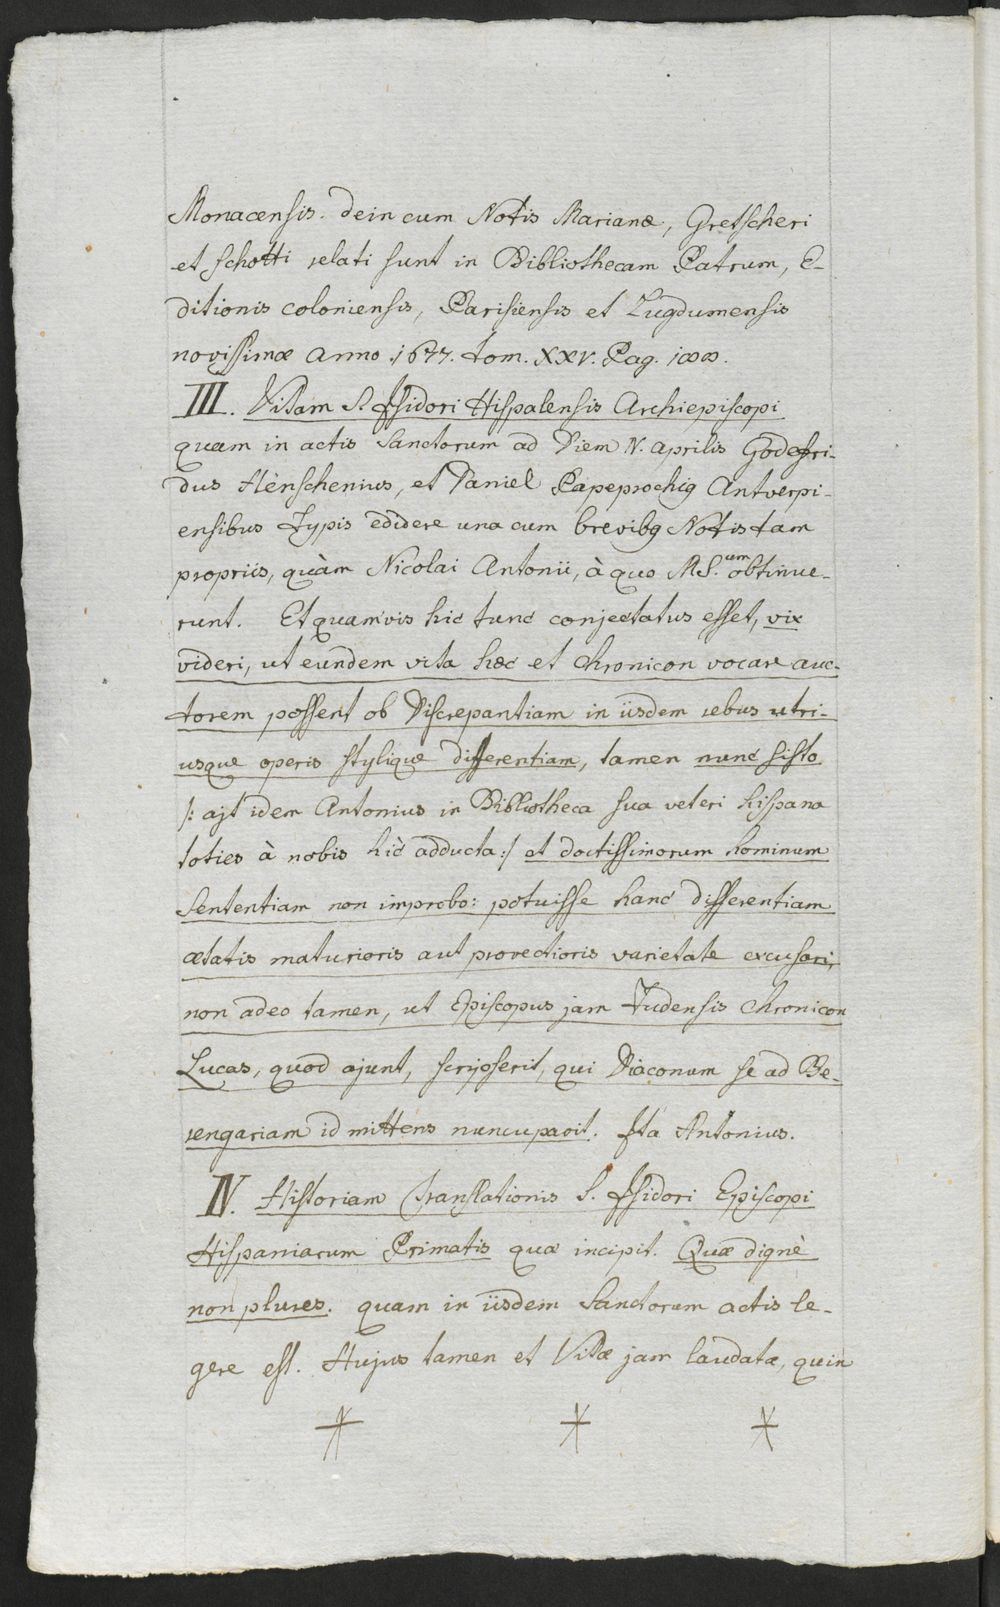 Monacensis. dein cum Notis Marianæ, Gretscheri
et schotti relati sunt in Bibliothecam Patrum, E-
ditionis coloniensis, Parisiensis et Lugdumensis
novissimæ Anno 1677. tom. XXV. Pag. 188.
III. Vitam S. Isidori Hispalensis Archiepiscopi
quam in actis Sanctorum ad Diem IV. Aprilis Godefri-
dus Hènschenius, et Daniel Papeprochig Antverpi-
ensibus Typis edidere una cum brevibg Notis tam
propriis, quàm Nicolai Antonii, à quo MS.um obtinue-
runt. Et quamvis hic tunc conjectatus esset, vix
videri, ut eundem vita hæc et chronicon vocare auc-
torem possent ob Discrepantiam in iisdem rebus utri-
usque operis stylique differentiam, tamen nunc sisto
/: ajt idem Antonius in Bibliotheca sua veteri hispana
toties à nobis hic adducta :/ et doctissimorum hominum
Sententiam non improbo: potuisse hanc differentiam
ætatis maturioris aut provectioris varietate excusari,
non adeo tamen, ut Episcopus jam Tudensis Chronicon
Lucas, quod ajunt, scripserit, qui Diaconum se ad Be-
rengariam id mittens nuncupavit. Ita Antonius.
IV. Historiam Translationis S. Isidori Episcopi
Hispaniarum Primatis quæ incipit. Quæ dignè
non plures. quam in iisdem Sanctorum actis le-
gere est. Hujus tamen et Vitæ jam laudatæ, quin